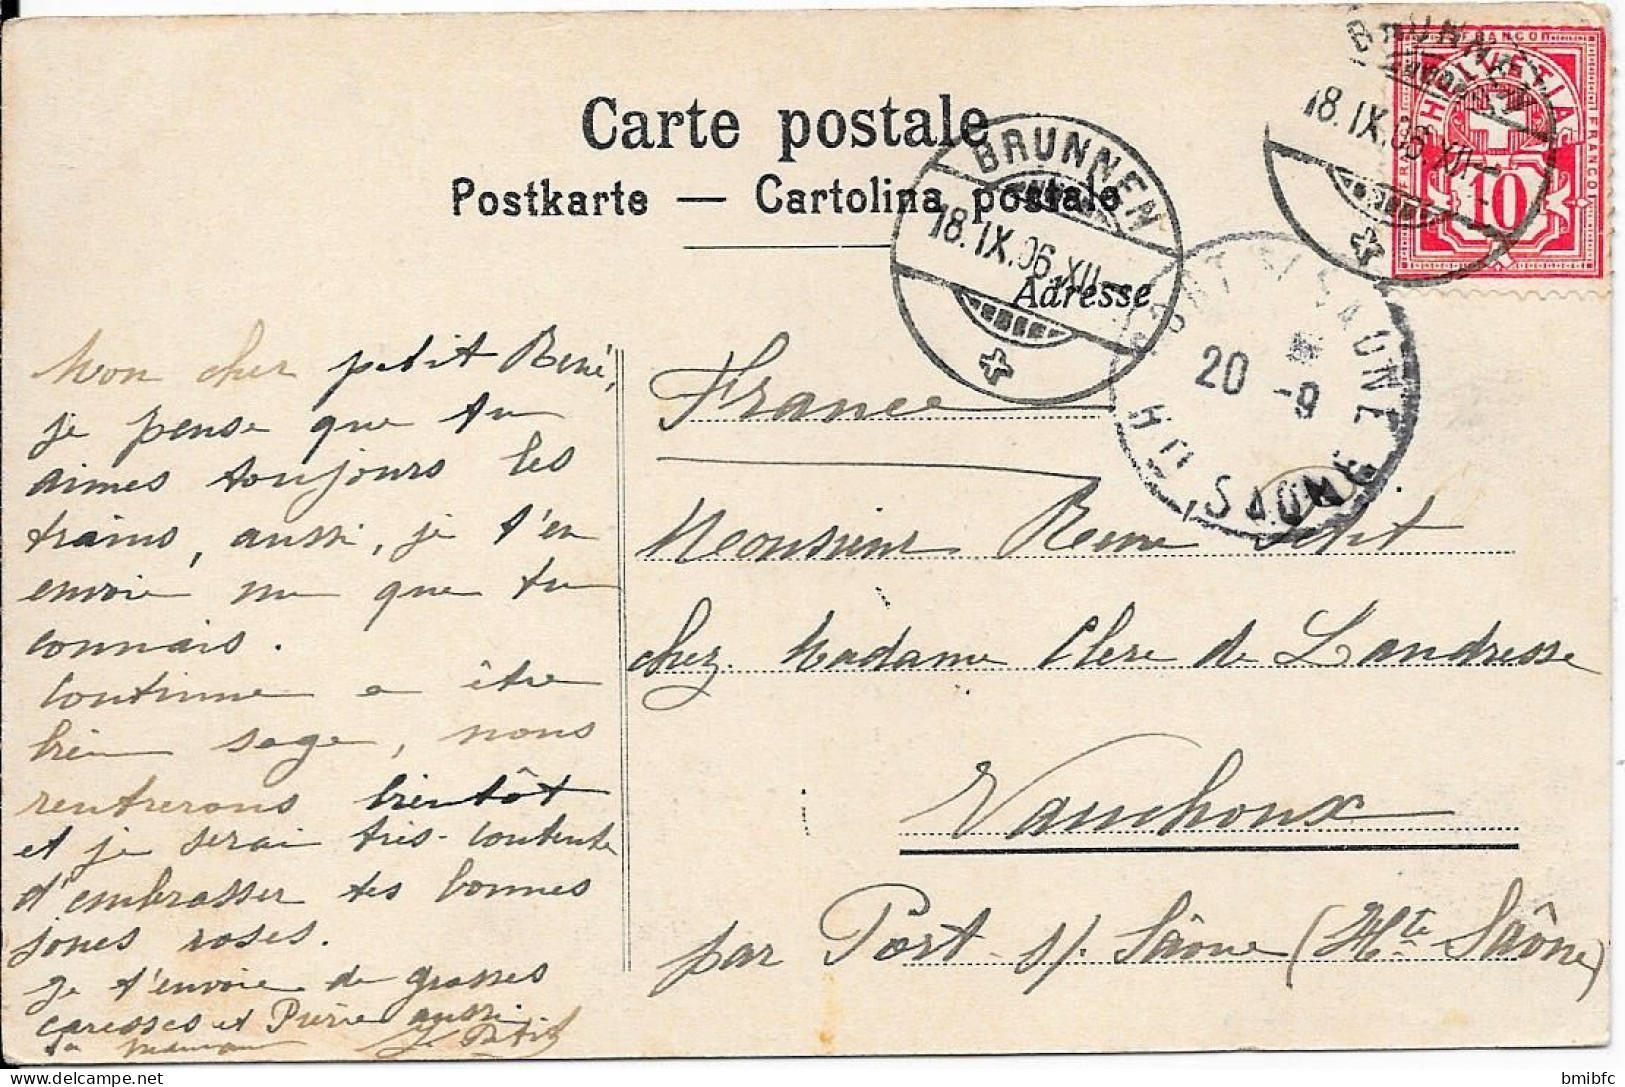 Carte postale
Postkarte — Cartolina postale
Adresse
BRUNNEN
18.IX.06.XII—
BRUNNEN
18.IX.06.XII—
HELVETIA
FRANCO
FRANCO
10
PORT S/ SAONE
20 -9
Hte SAONE
Mon cher petit René,
je pense que tu
aimes toujours les
trains, aussi, je t'en
envoie un que tu
connais.
Continue a être
bien sage, nous
rentrerons bientôt
et je serai très-contente
d'embrasser tes bonnes
joues roses.
Je t'envoie de grosses
caresses et Pierre aussi
ta maman
J. Petit
France
Monsieur René Petit
chez Madame Clerc de Landresse
Vauchoux
par Port s/. Saône (Hte Saône)
bmibfc